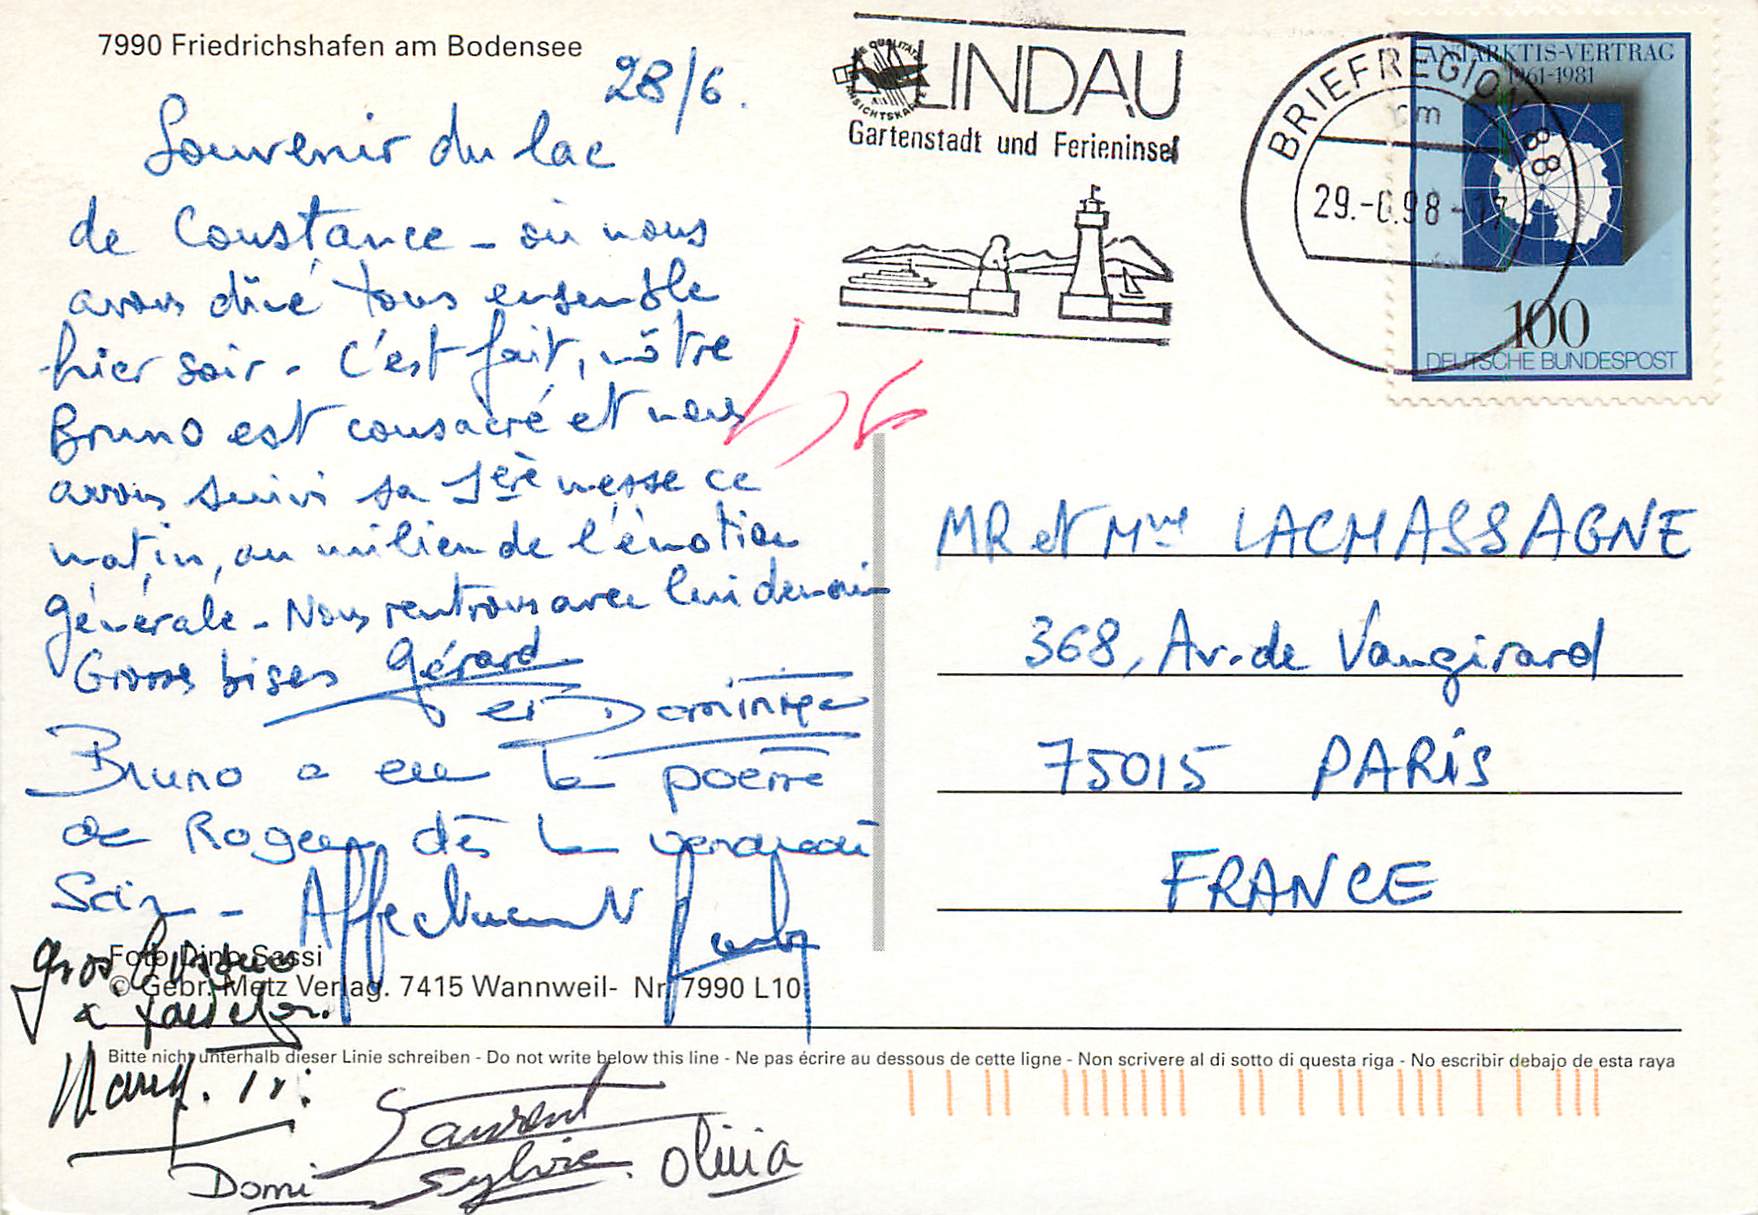 7990 Friedrichshafen am Bodensee
28/6.
Souvenir du lac
de Constance - où nous
avons dîné tous ensemble
hier soir. C'est fait, nôtre
Bruno est consacré et nous
avons suivi sa 1ère messe ce
matin, au milieu de l'émotion
générale - Nous rentrons avec lui demain
Grosses bises Gérard
et Dominique
Bruno a eu le poème
de Roger dès le vendredi
Soir - Affectueusement
gros
Foto Dino Sassi
© Gebr. Metz Verlag. 7415 Wannweil- Nr. 7990 L10
Bitte nicht unterhalb dieser Linie schreiben - Do not write below this line - Ne pas écrire au dessous de cette ligne - Non scrivere al di sotto di questa riga - No escribir debajo de esta raya
Laurent
Domi Sylvie. Olivia
LINDAU
Gartenstadt und Ferieninsel
BRIEFREGION 88
29.-6.98-17
ANTARKTIS-VERTRAG
1961-1981
100
DEUTSCHE BUNDESPOST
MR et Mme LACHASSAGNE
368, Av. de Vaugirard
75015 PARIS
FRANCE